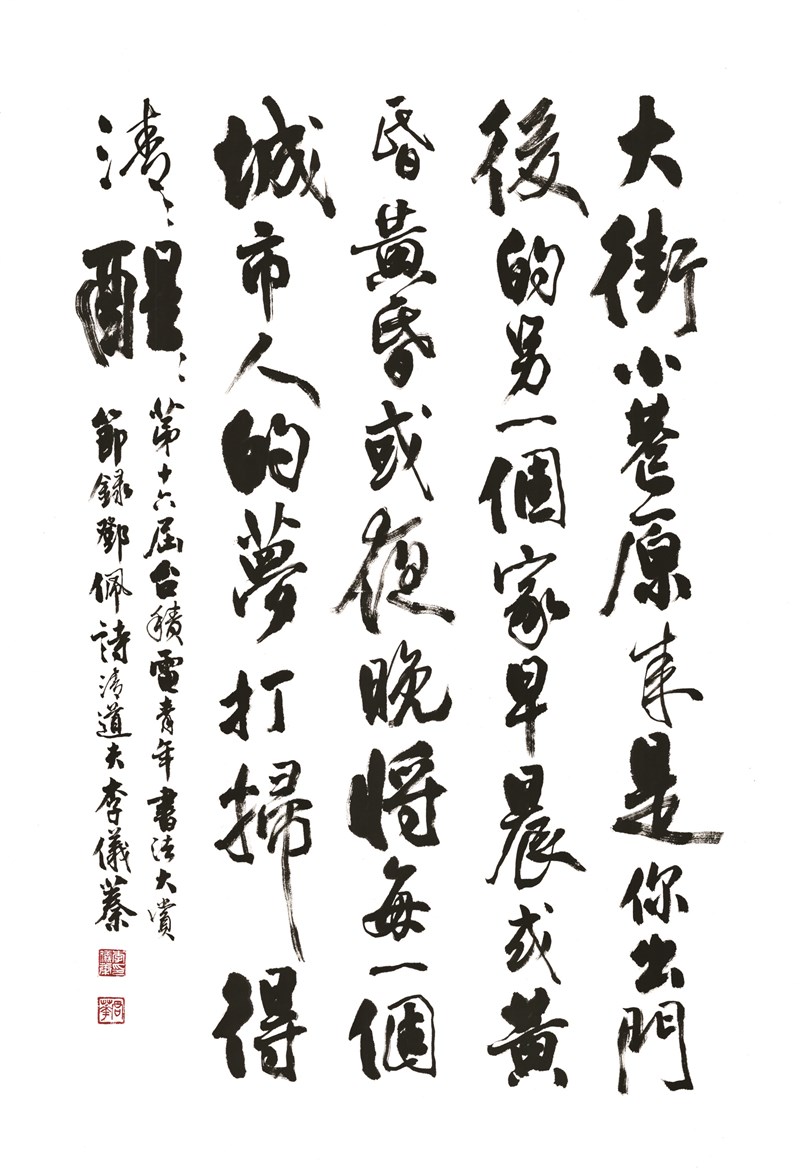 大街小巷原來是你出門
後的另一個家早晨或黃
昏黃昏或夜晚將每一個
城市人的夢打掃得
清清醒醒
第十六屆台積電青年書法大賞
節錄鄧佩詩清道夫李儀蓁